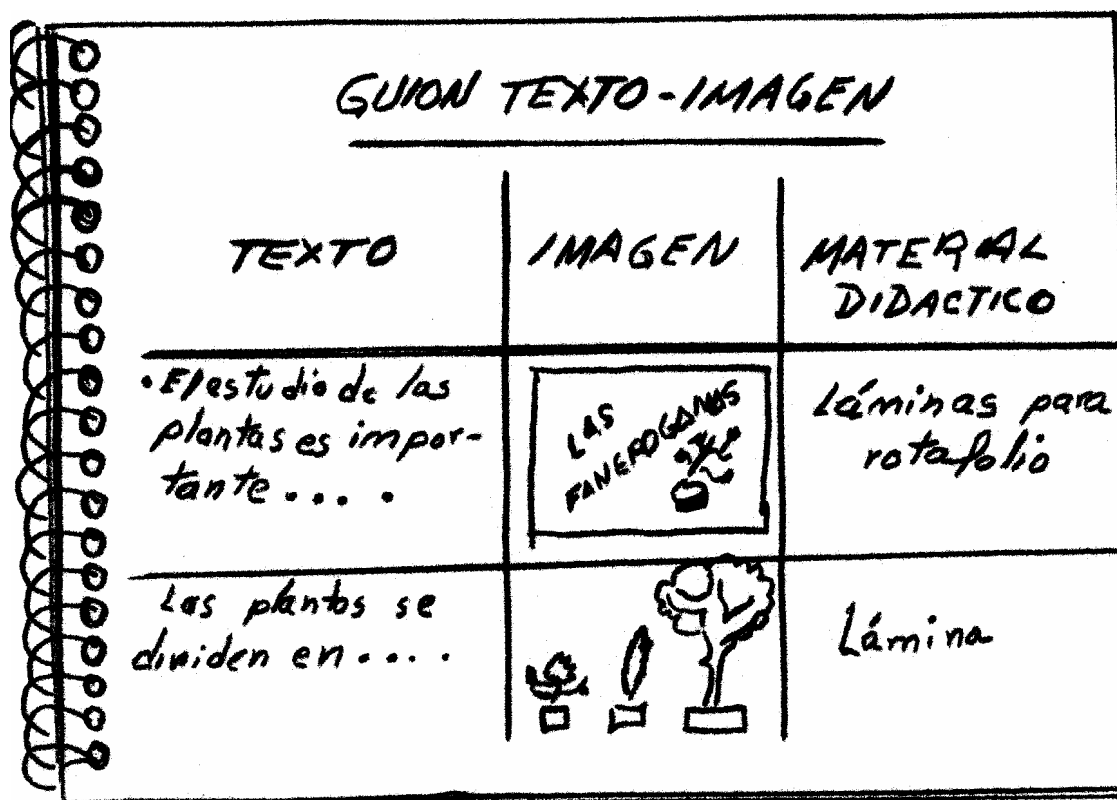 GUION TEXTO-IMAGEN
TEXTO
IMAGEN
MATERIAL
DIDACTICO
• El estudio de las
plantas es impor-
tante....
LAS
FANEROGAMAS
Láminas para
rotafolio
Las plantas se
dividen en....
Lámina